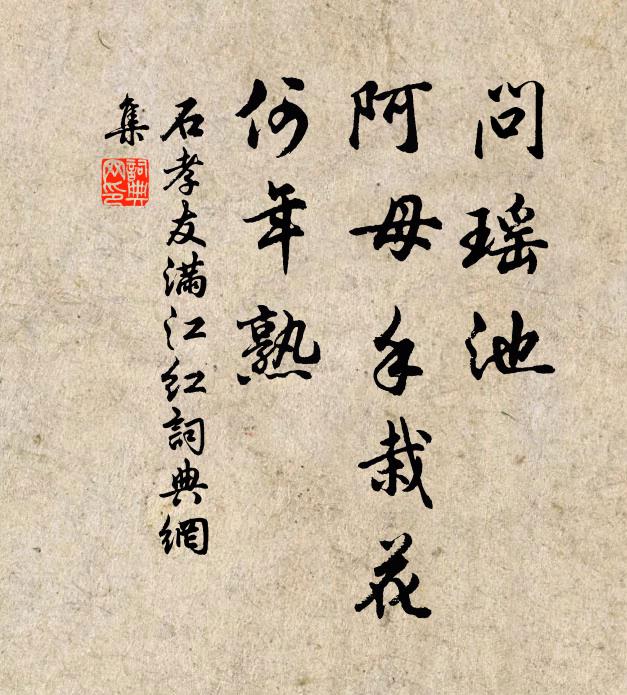 問瑶池
阿母手栽花
何年熟
石孝友滿江紅詞典網
集
詞典網印